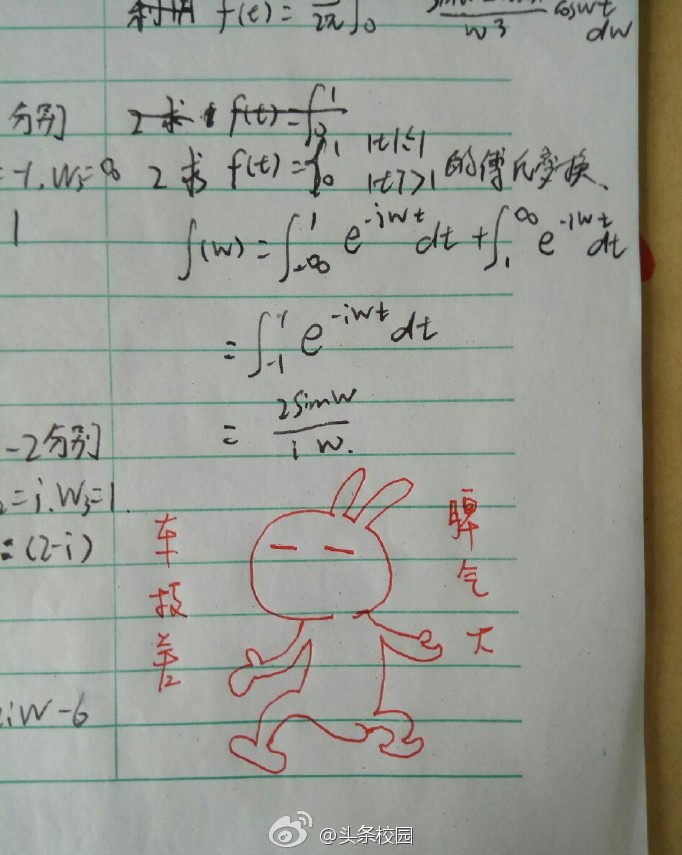 利用 f(t) = 1/2π ∫0 coswt dw
w³
分别 2 求 f(t) = ∫ 1 0
= -1. W3 = ∞ 2 求 f(t) = { 1 |t|≤1 0 |t|>1 的傅氏变换、
1 ∫(w) = ∫-∞^1 e^-iwt dt + ∫1^∞ e^-iwt dt
= ∫-1^1 e^-iwt dt
= 2sinw / i w.
-2分别
= i. W3 = 1.
: (2-i)
iW - 6
车技差
脾气大
@头条校园